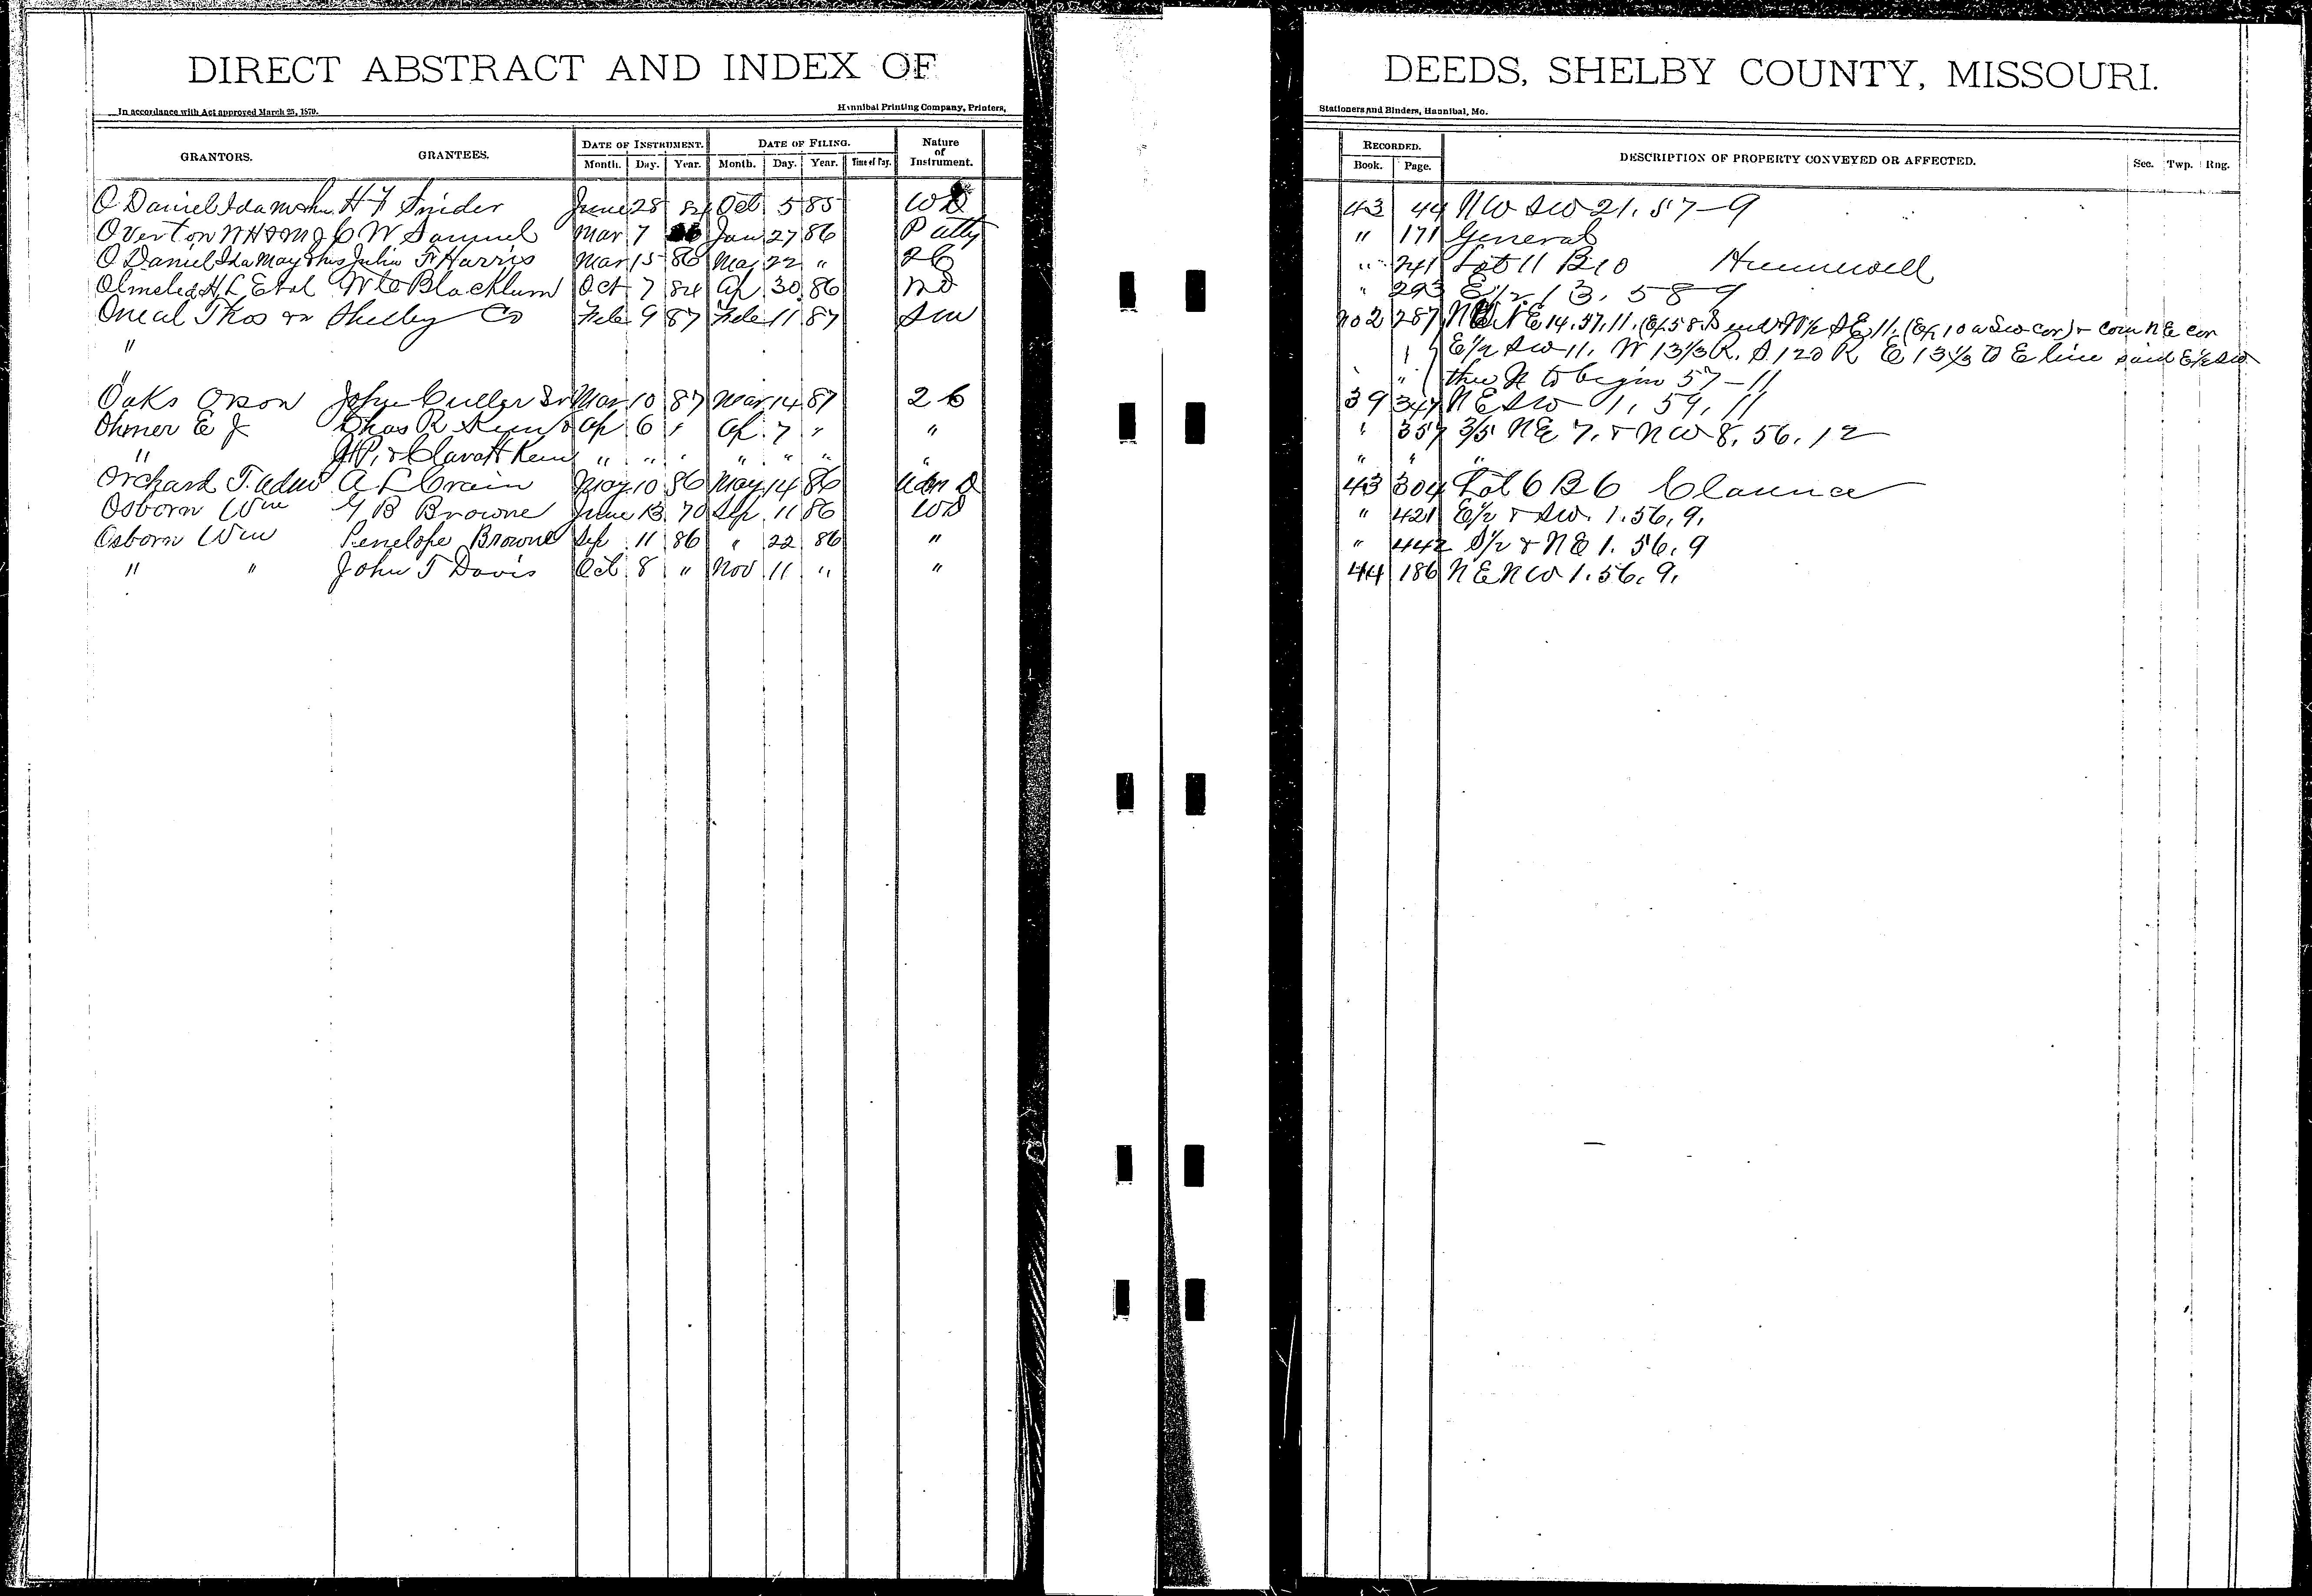 DIRECT ABSTRACT AND INDEX OF DEEDS, SHELBY COUNTY, MISSOURI.
In accordance with Act approved March 25, 1870. Hannibal Printing Company, Printers, Stationers and Binders, Hannibal, Mo.
GRANTORS. GRANTEES. DATE OF INSTRUMENT. DATE OF FILING. Nature of Instrument. RECORDED. DESCRIPTION OF PROPERTY CONVEYED OR AFFECTED. Sec. Twp. Rng.
Month. Day. Year. Month. Day. Year. Time of Day. Book. Page.
O Daniel Ida H F Snider June 28 84 Oct 5 85 WD 43 44 NW SW 21. 57-9
Overton W H & M J C W Samuel Mar 7 Jan 27 86 P Atty " 171 General
O Daniel Ida May & hus Julia F Harris Mar 15 86 Mar 22 " 2C " 241 Lot 11 B 10 Hunnewell
Olmsted H L Et al W C Blackburn Oct 7 84 Ap 30 86 " 293 E 1/2 13. 58-9
Oneal Thos Shelby Co Feb 9 87 Feb 11 87 Sm 287 NE 14. 57. 11. (Ex 10 a SW cor) & Com NE cor
" E 1/2 SW 11. W 13 1/3 R. S 120 R E 13 1/3 to E line said E 1/2 SW
" " thr N to begin 57-11
Oaks Orson John Culler Sr Mar 10 87 Mar 14 87 2C 39 347 NE SW 1. 59. 11
Ohmer E J Chas R Ap 6 " Ap 7 " " " 357 3/5 NE 7. & NW 8. 56. 12
" J P. & Clara H " " " " " " " " " "
Orchard J. Adm A L Crain May 10 86 May 14 86 Adm D 43 304 Lot 6 B 6 Clarence
Osborn Wm G B Browne June 13 70 Sep 11 86 WD " 421 E 1/2 & SW. 1. 56. 9.
Osborn Wm Penelope Browne Sep 11 86 " 22 86 " " 442 S 1/2 & NE 1. 56. 9
" " John T Davis Oct 8 " Nov 11 " " 44 186 NE NW 1. 56. 9.